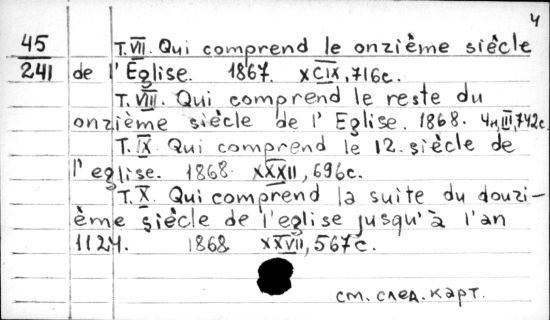 4
45 T. VII. Qui comprend le onzième siècle
241 de l'Église. 1867. XCIX, 716c.
T. VIII. Qui comprend le reste du
onzième siècle de l'Eglise. 1868. 4н, III, 742c.
T. IX. Qui comprend le 12. siècle de
l'eglise. 1868. XXXII, 696c.
T. X. Qui comprend la suite du douzi-
ème siècle de l'eglise jusqu'à l'an
1124. 1868 XXVII, 567c.
см. след. карт.